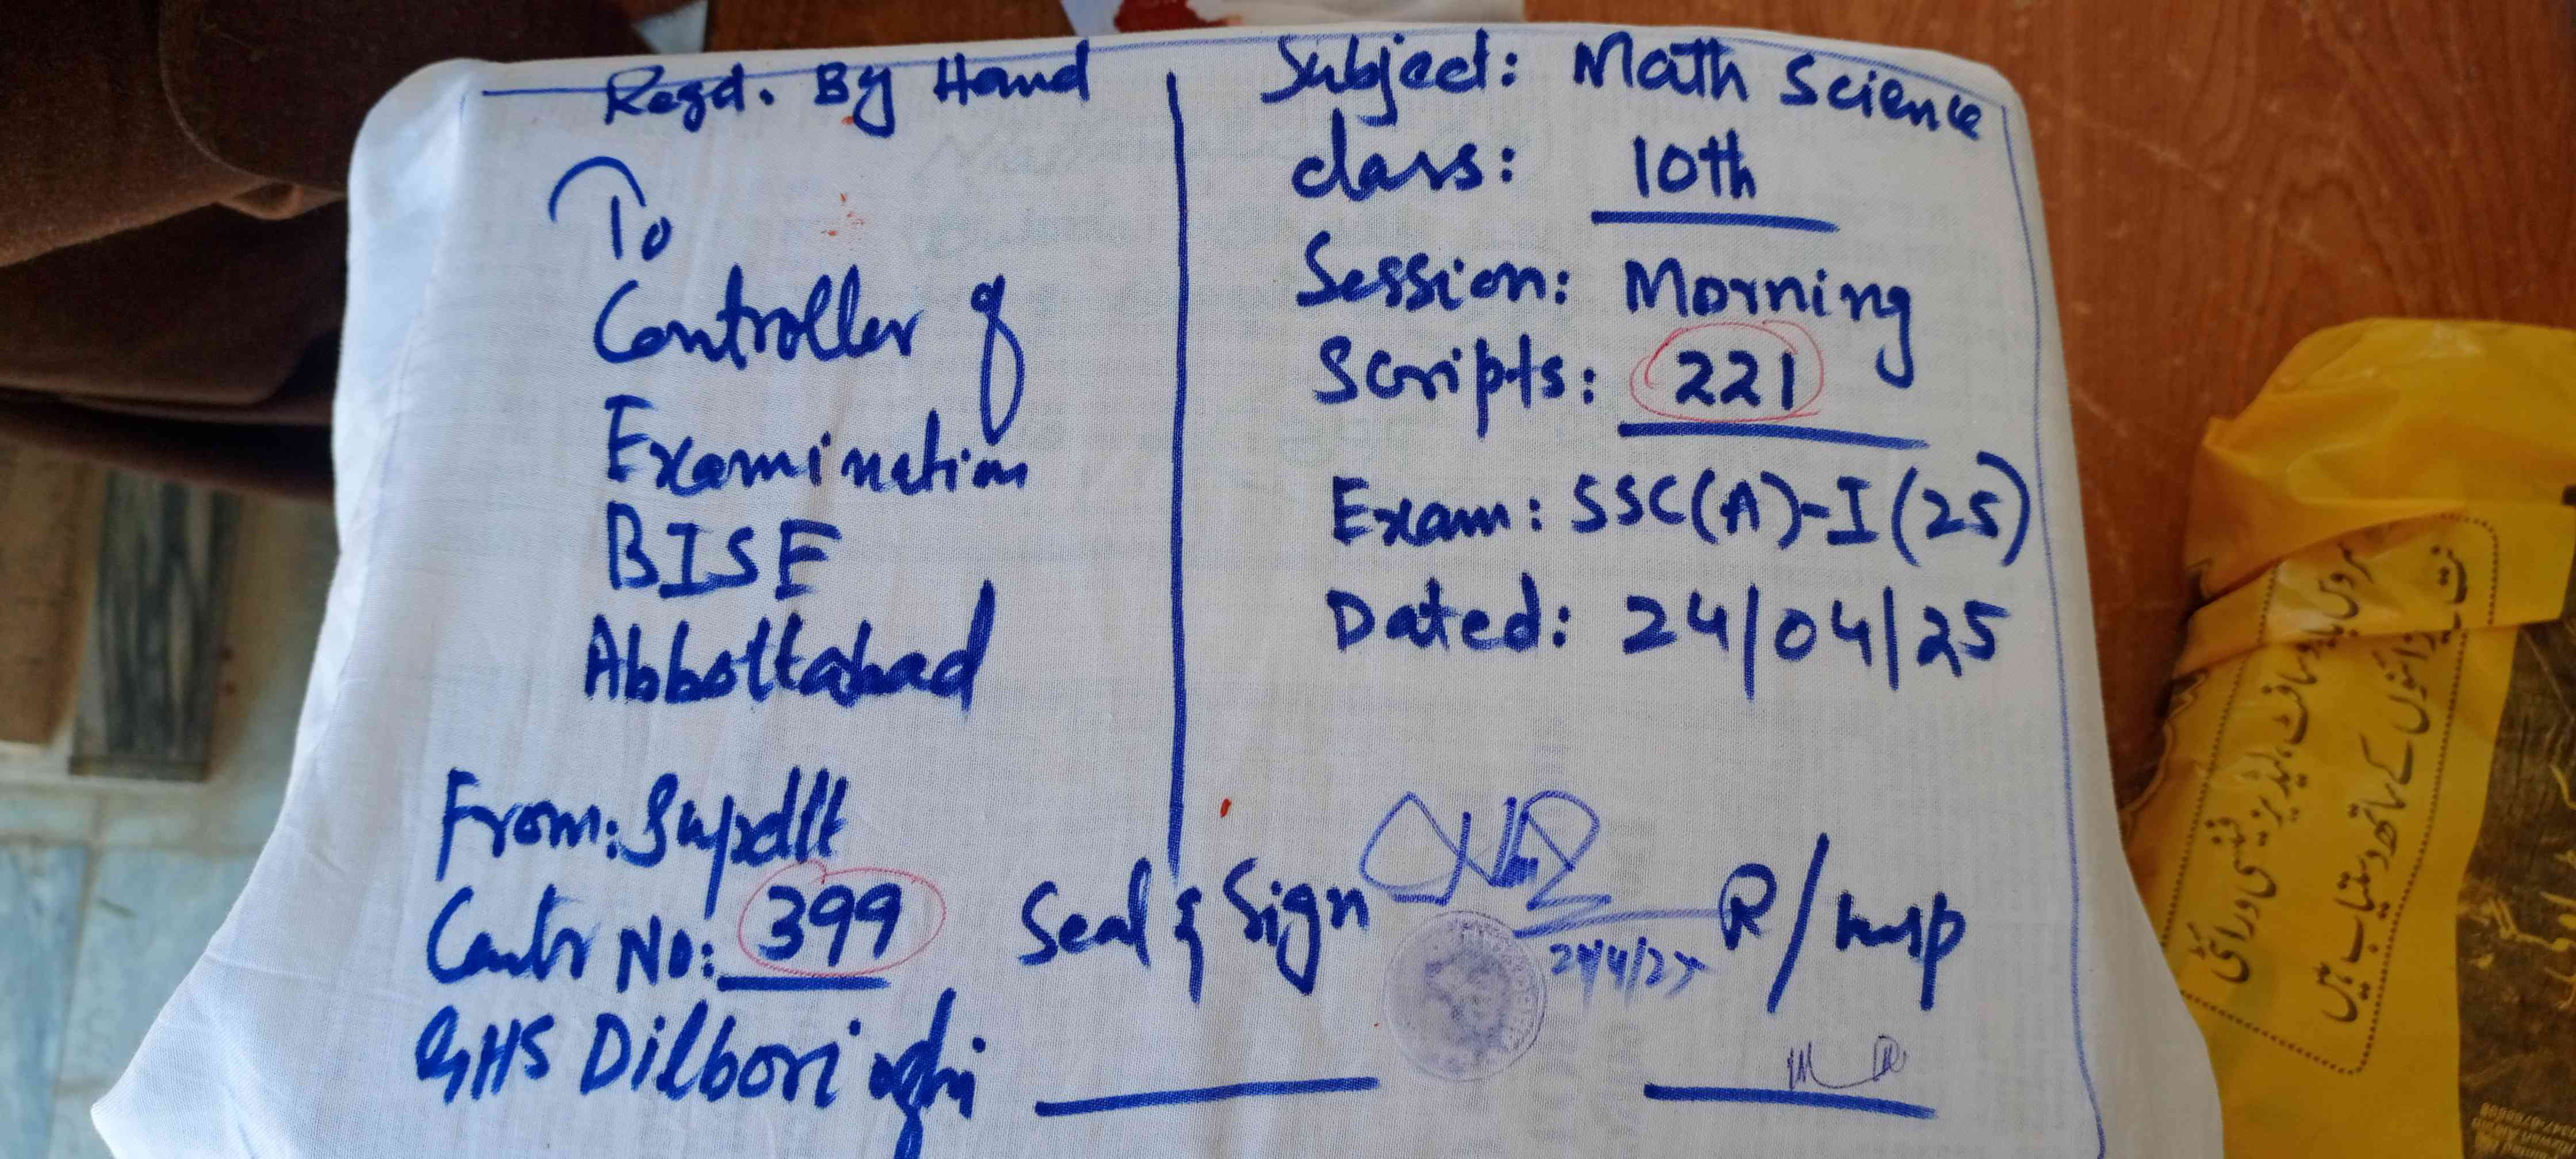 Regd. By Hand
To
Controller of
Examination
BISE
Abbottabad
From: Supdtt
Centr No: 399
GHS Dilbori oghi
Subject: Math Science
class: 10th
Session: Morning
Scripts: 221
Exam: SSC(A)-I(25)
Dated: 24/04/25
Seal & Sign
24/4/25
R/Insp